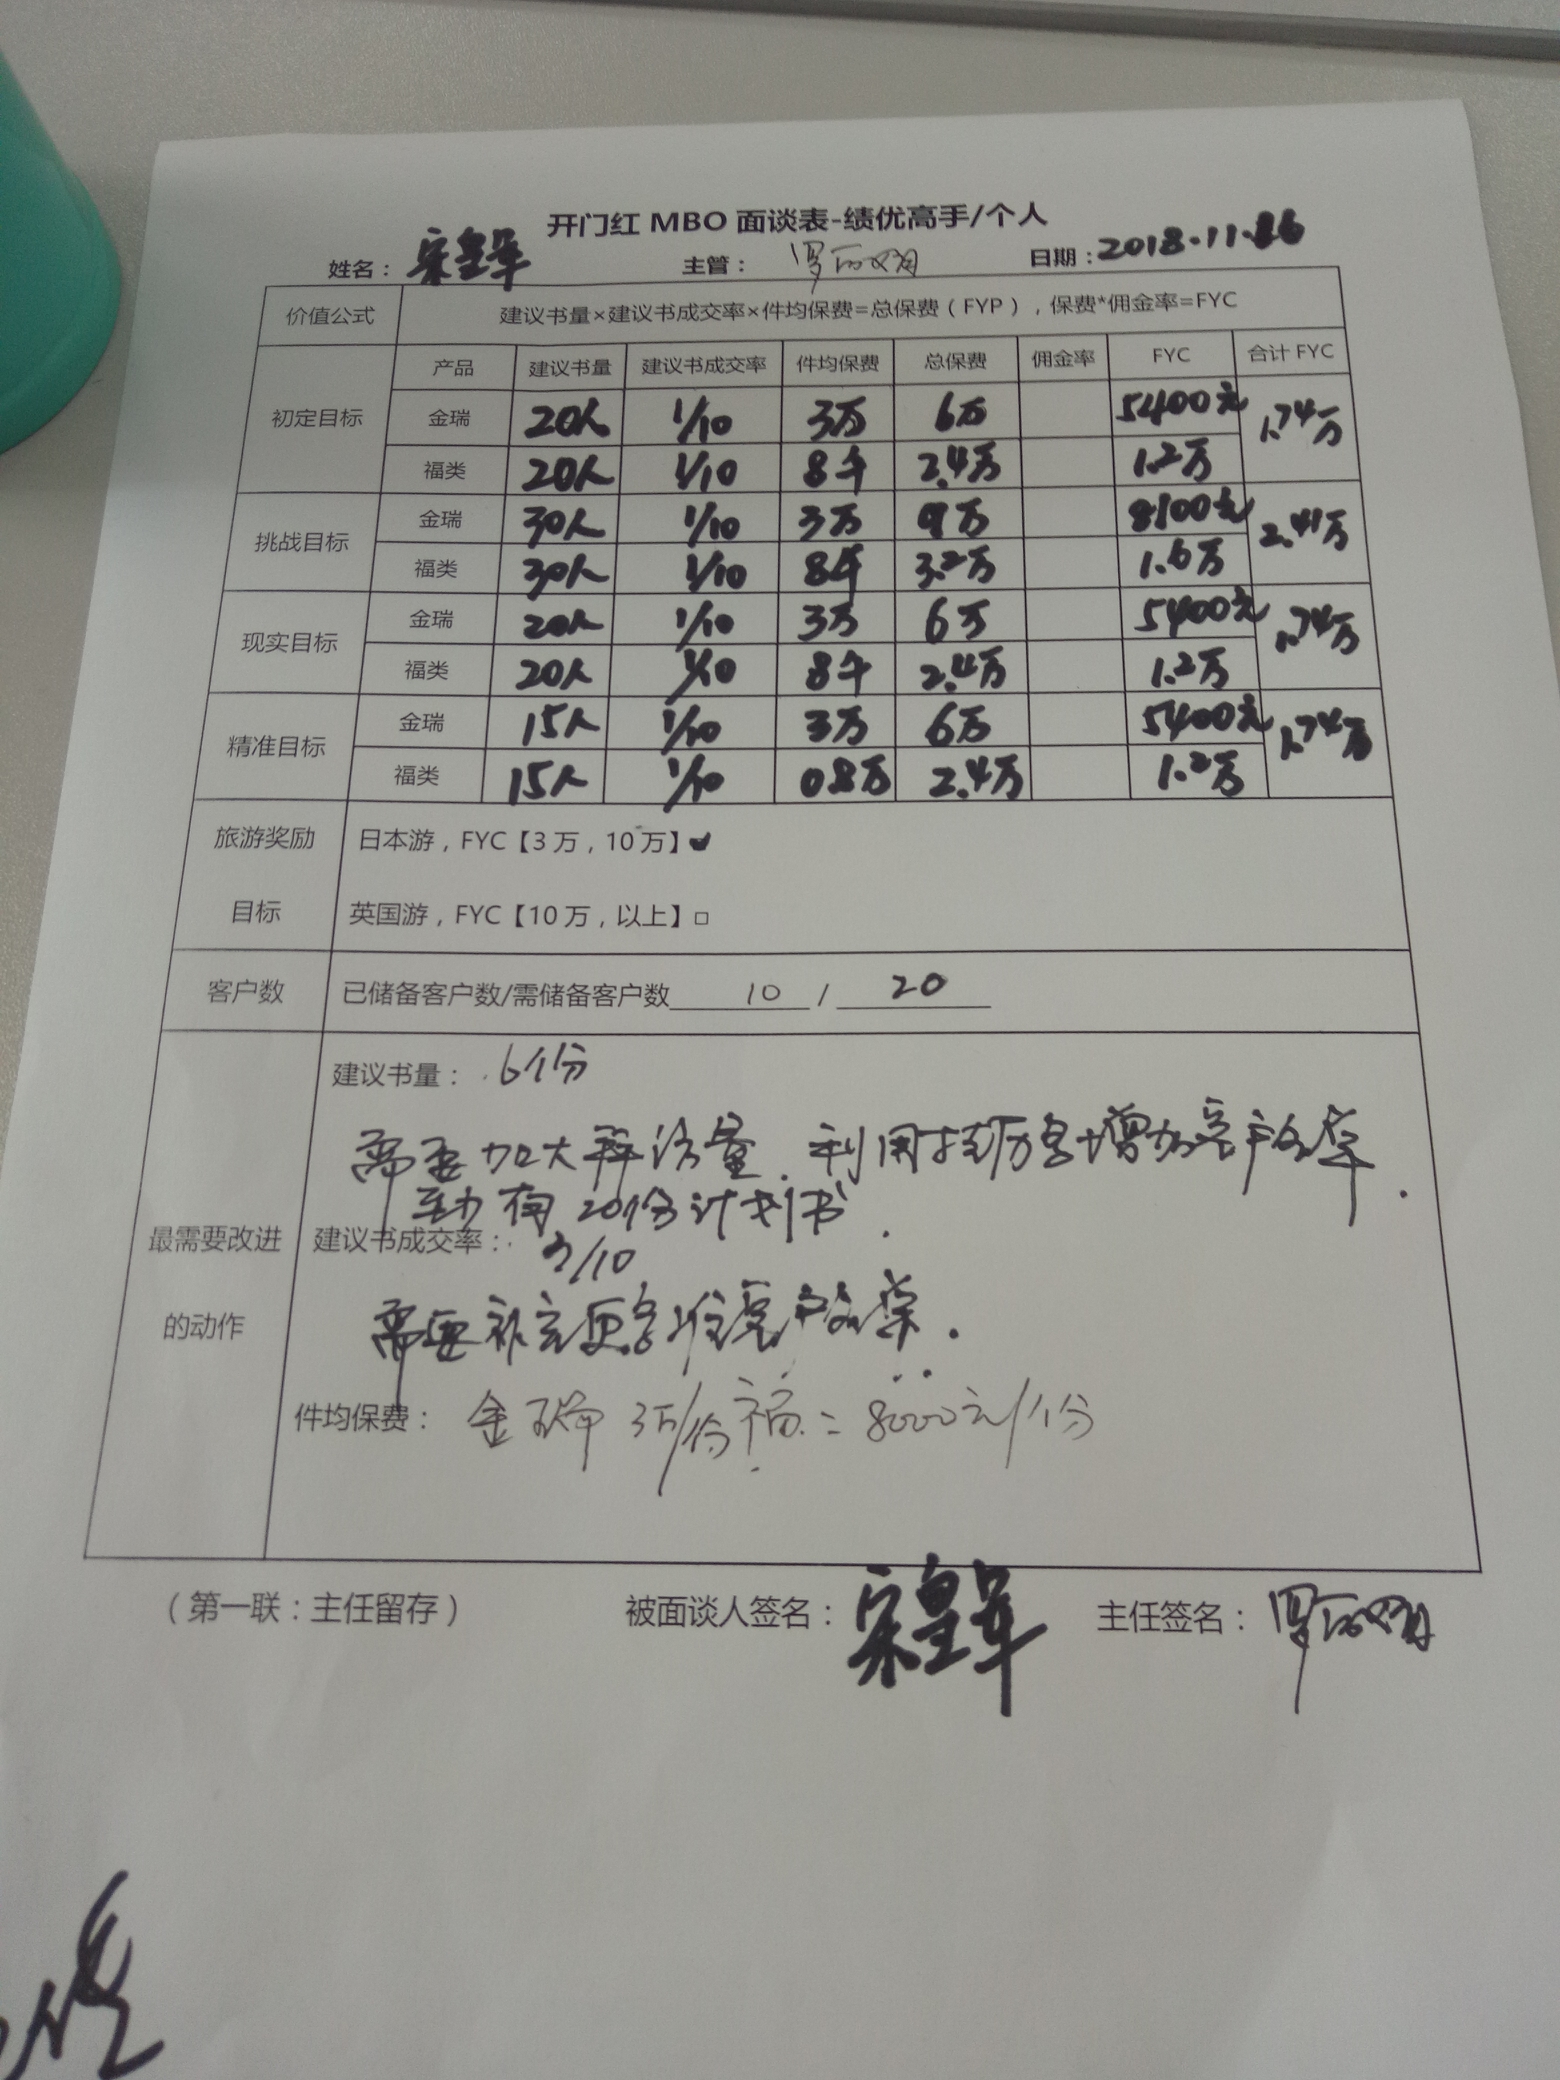 开门红 MBO 面谈表-绩优高手/个人
姓名： 宋皇军 主管： 罗 日期：2018.11.
价值公式 建议书量×建议书成交率×件均保费=总保费（FYP），保费*佣金率=FYC
产品 建议书量 建议书成交率 件均保费 总保费 佣金率 FYC 合计 FYC
初定目标 金瑞 20人 1/10 3万 6万 5400元 1.74万
福类 20人 1/10 8千 2.4万 1.2万
挑战目标 金瑞 30人 1/10 3万 9万 8100元 2.41万
福类 30人 1/10 8千 3.2万 1.6万
现实目标 金瑞 20人 1/10 3万 6万 5400元 1.74万
福类 20人 1/10 8千 2.4万 1.2万
精准目标 金瑞 15人 1/10 3万 6万 5400元 1.74万
福类 15人 1/10 0.8万 2.4万 1.2万
旅游奖励 日本游，FYC【3 万，10 万】
目标 英国游，FYC【10 万，以上】□
客户数 已储备客户数/需储备客户数 10 / 20
建议书量： 6个份
需要加大拜访量. 利用 增加客户名单.
有 20份计划书.
最需要改进 建议书成交率： /10
的动作 需要 客户名单.
件均保费： 金瑞 3万/份 福 = 8000元/个份
（第一联：主任留存） 被面谈人签名： 宋皇军 主任签名： 罗